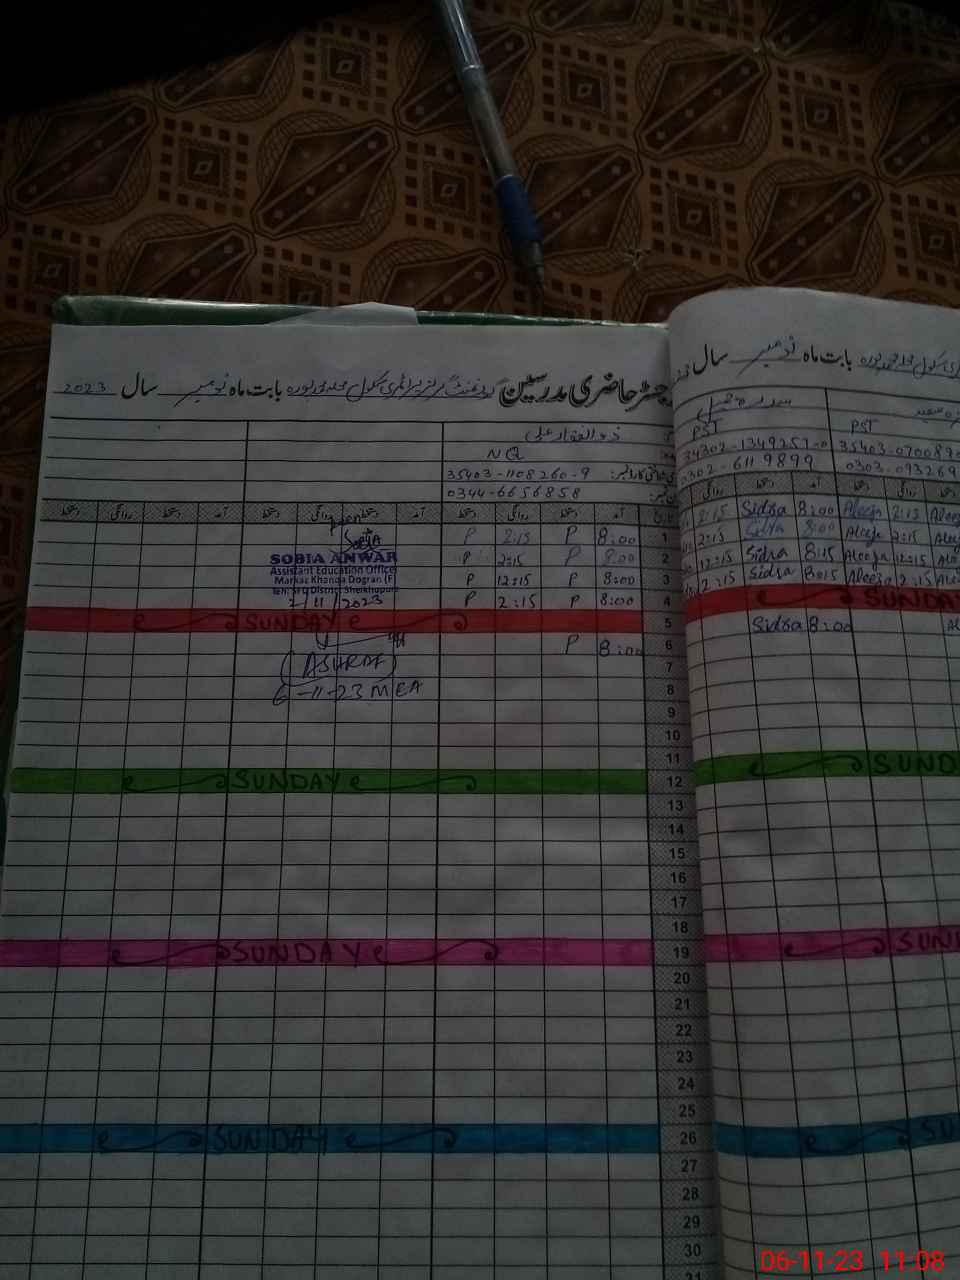 رجسٹر حاضری مدرسین گورنمنٹ گرلز پرائمری سکول محلہ بابت ماہ نومبر سال 2023
ذوالفقار علی
NQ
35403-1108260-9
0344-6656858
آمد دستخط روانگی دستخط
1 8:00 P 2:15 P
2 8:00 P 2:15 P
3 8:00 P 12:15 P
4 8:00 P 2:15 P
5 SUNDAY
6 8:00 P
7
8
9
10
11
12 SUNDAY
13
14
15
16
17
18
19 SUNDAY
20
21
22
23
24
25
26 SUNDAY
27
28
29
30
31
Seen
Sobia
SOBIA ANWAR
Assistant Education Officer
Markaz Khanqa Dogran (F)
Teh: SFQ District Sheikhupura
2/11/2023
(ASHRAF)
6-11-23 MEA
بابت ماہ نومبر سال
PST
PST
34302-1349257-0
35403-0700890
0302-6119899
0303-093269
2:15 Sidra 8:00 Aleeza 2:15 Alee
2:15 Sidra 8:00 Aleeza 2:15
12:15 Sidra 8:15 Aleeza 12:15
2:15 Sidra 8:15 Aleeza 2:15
SUNDAY
Sidra 8:00
SUND
SUN
SU
06-11-23 11:08